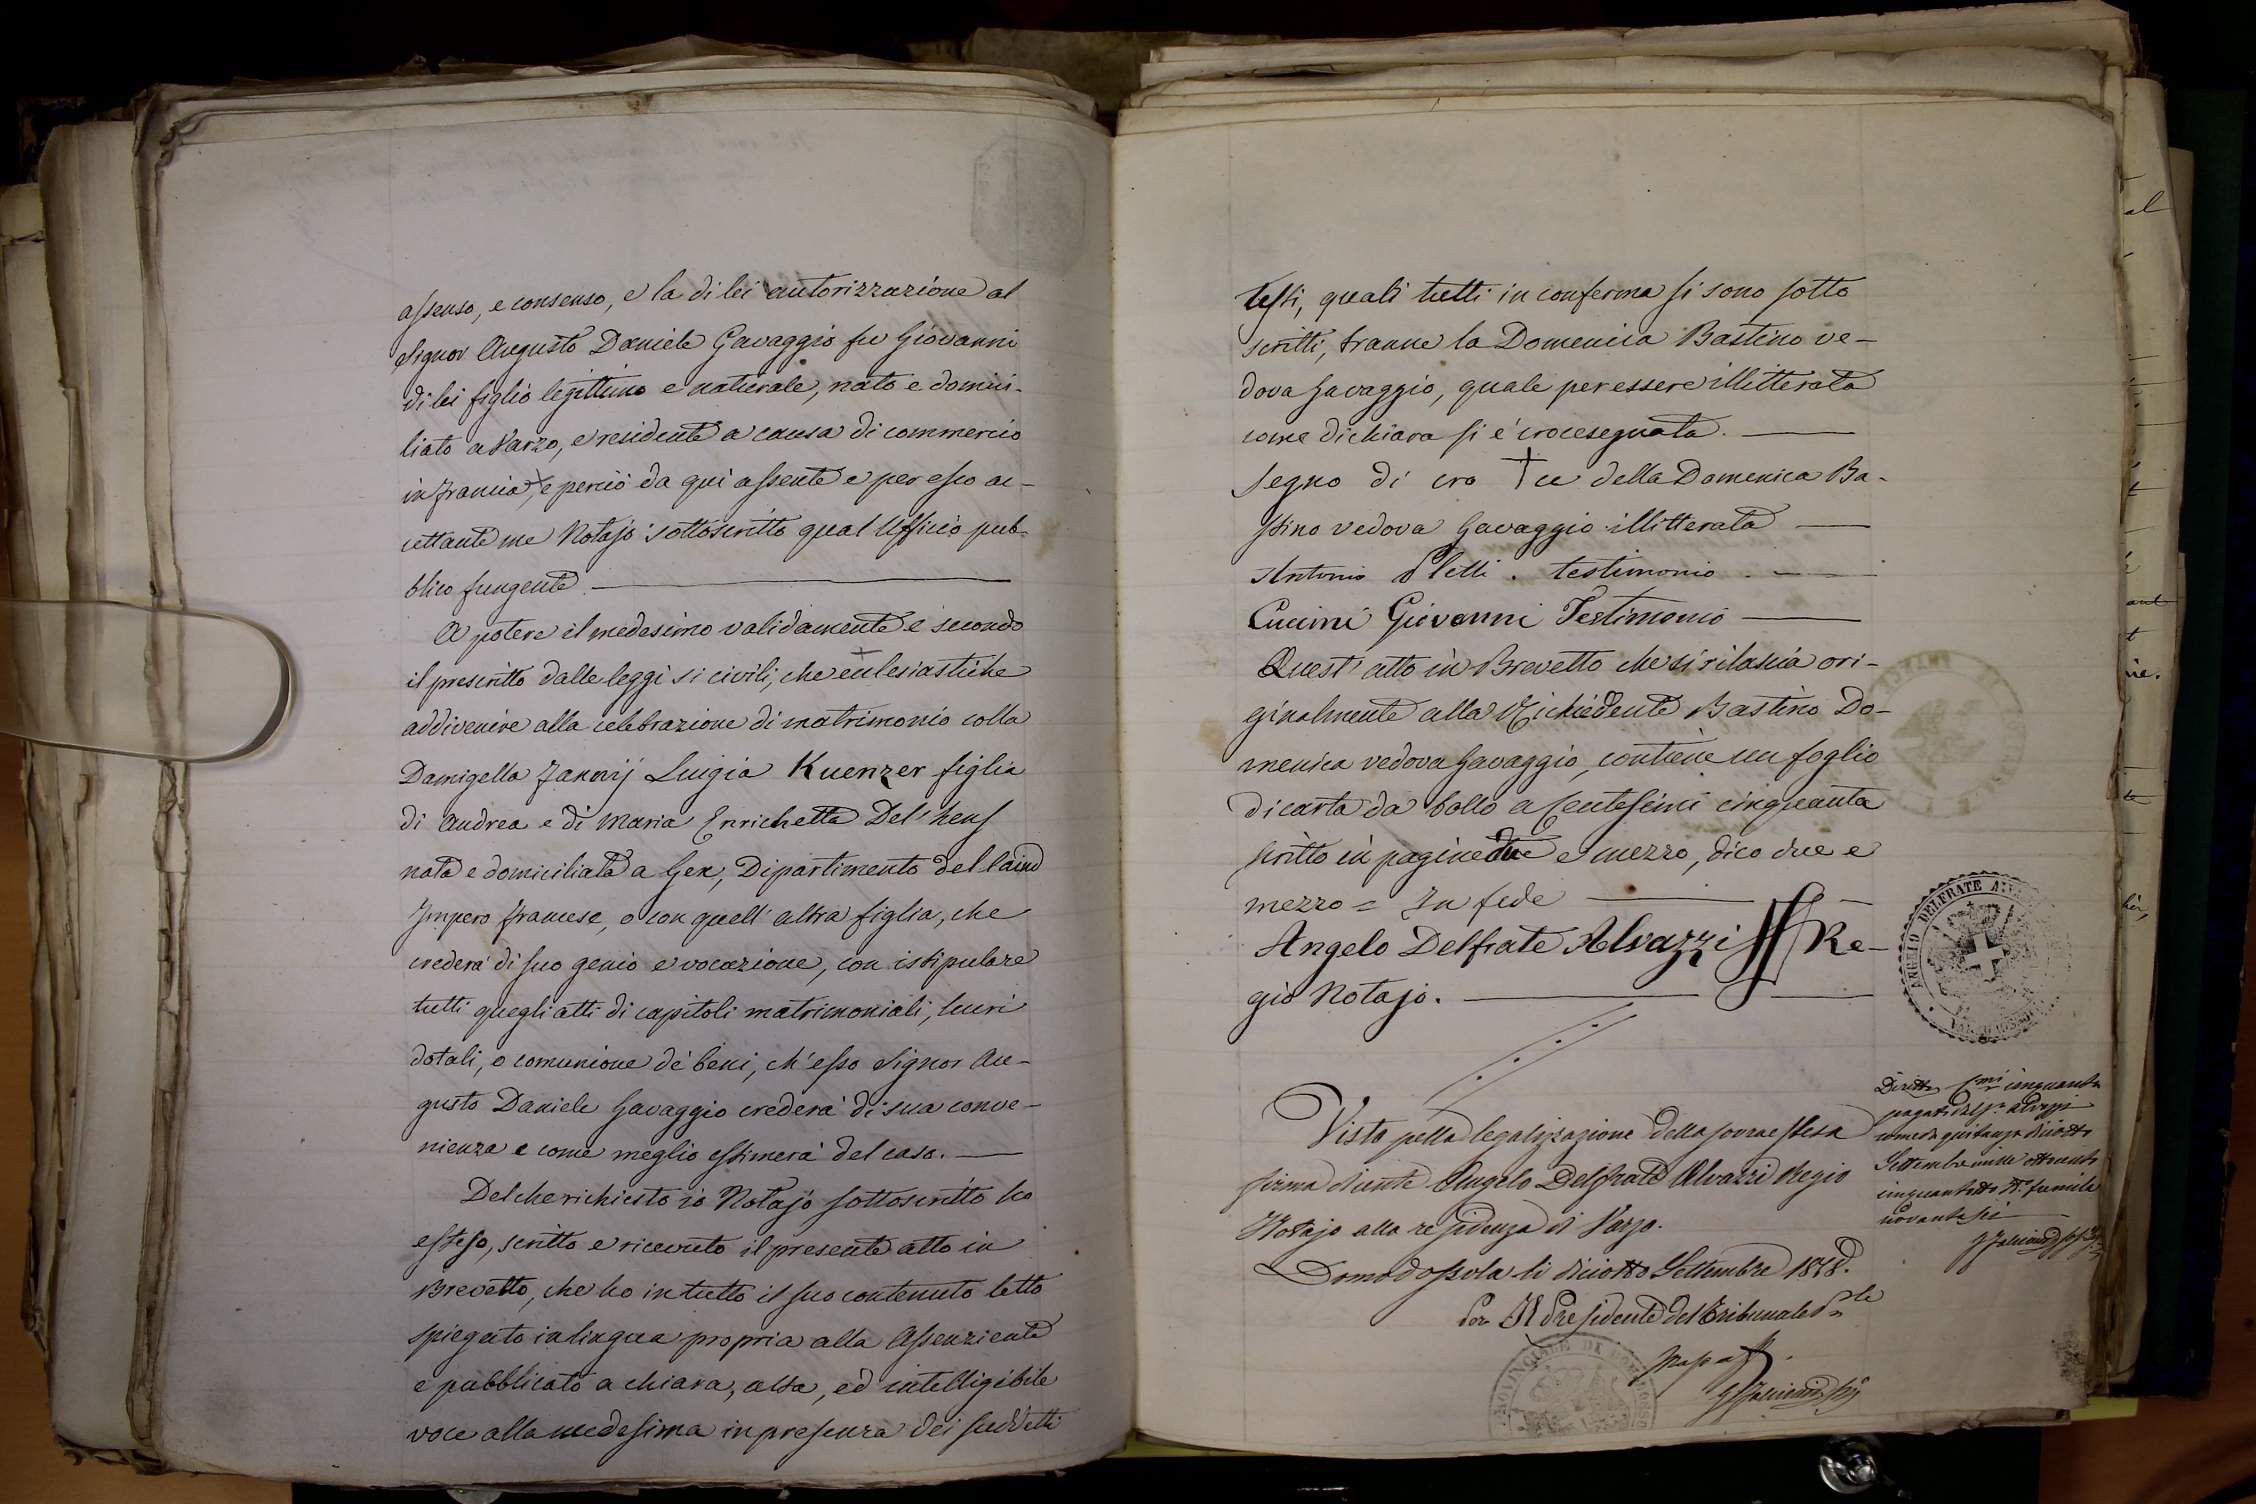 assenso, e consenso, e la di lei autorizzazione al
Signor Augusto Daniele Gavaggio fu Giovanni
di lei figlio legittimo e naturale, nato e domici-
liato a Varzo, e residente a causa di commercio
in Francia, e perciò da qui assente e per esso ac-
cettante me Notajo sottoscritto qual Ufficio pub-
blico fungente.
A potere il medesimo validamente e secondo
il prescritto dalle leggi sì civili, che ecclesiastiche
addivenire alla celebrazione di matrimonio colla
Damigella Luigia Kuenzer figlia
di Andrea e di Maria Enrichetta
nata e domiciliata a Gex, Dipartimento dell'
Impero francese, o con quell'altra figlia, che
crederà di suo genio e vocazione, con istipulare
tutti quegli atti di capitoli matrimoniali, lucri
dotali, o comunione de' beni, ch'esso Signor Au-
gusto Daniele Gavaggio crederà di sua conve-
nienza e come meglio estimerà del caso.
Del che richiesto io Notajo sottoscritto ho
esteso, scritto e ricevuto il presente atto in
Brevetto, che ho in tutto il suo contenuto letto
spiegato in lingua propria alla Assenziente
e pubblicato a chiara, alta, ed intelligibile
voce alla medesima in presenza dei suddetti
testi, quali tutti in conferma si sono sotto
scritti, tranne la Domenica Bastino ve-
dova Gavaggio, quale per essere illitterata
come dichiara si è crocesegnata.
Segno di cro † ce della Domenica Ba-
stino vedova Gavaggio illitterata
Antonio Pletti. testimonio
Cuccini Giovanni Testimonio
Quest'atto in Brevetto che si rilascia ori-
ginalmente alla Richiedente Bastino Do-
menica vedova Gavaggio, contiene un foglio
di carta da bollo a Centesimi cinquanta
scritto in pagine due e mezzo, dico due e
mezzo = In fede
Angelo Delfrate Alvazzi Re-
gio Notajo.
ANGELO DELFRATE
Visto pella legalizzazione della sovraestesa
firma Angelo Delfrate Alvazzi Regio
Notajo alla residenza di Varzo.
Domodossola li diciotto Settembre 1858.
Per Il Presidente del Tribunale
Diritto Cmi cinquanta
pagati dal Sr Alvazzi
come da quitanza diciotto
Settembre mille ottocento
cinquantotto
novanta sei